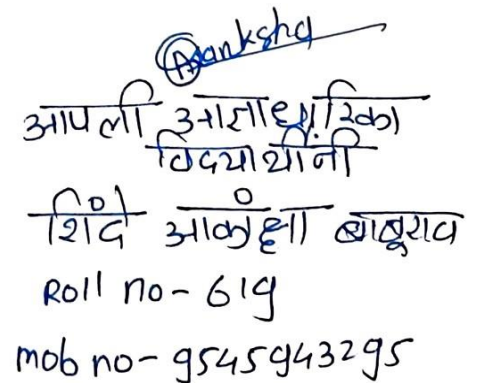 Aakanksha
आपली आज्ञाधारिका
विद्यार्थीनी
शिंदे आकांक्षा बाबूराव
Roll no - 619
mob no - 9545943295